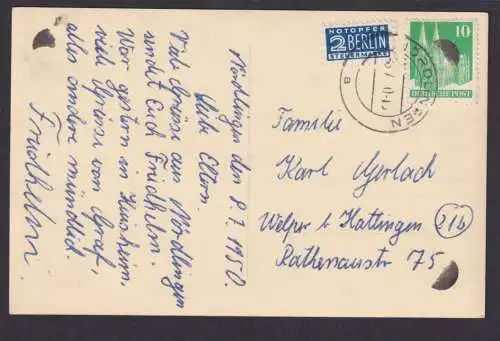 Nördlingen den 8.7.1950.
Liebe Eltern.
Viele Grüsse aus Nördlingen
sendet Euch Friedhelm.
Vor gestern in
viele Grüsse von Graf,
alles andere mündlich.
Friedhelm
NOTOPFER
2 BERLIN
STEUERMARKE
10
DEUTSCHE POST
a
Familie
Karl Gerlach
Welper b/ Hattingen (21b)
Rathenaustr 75